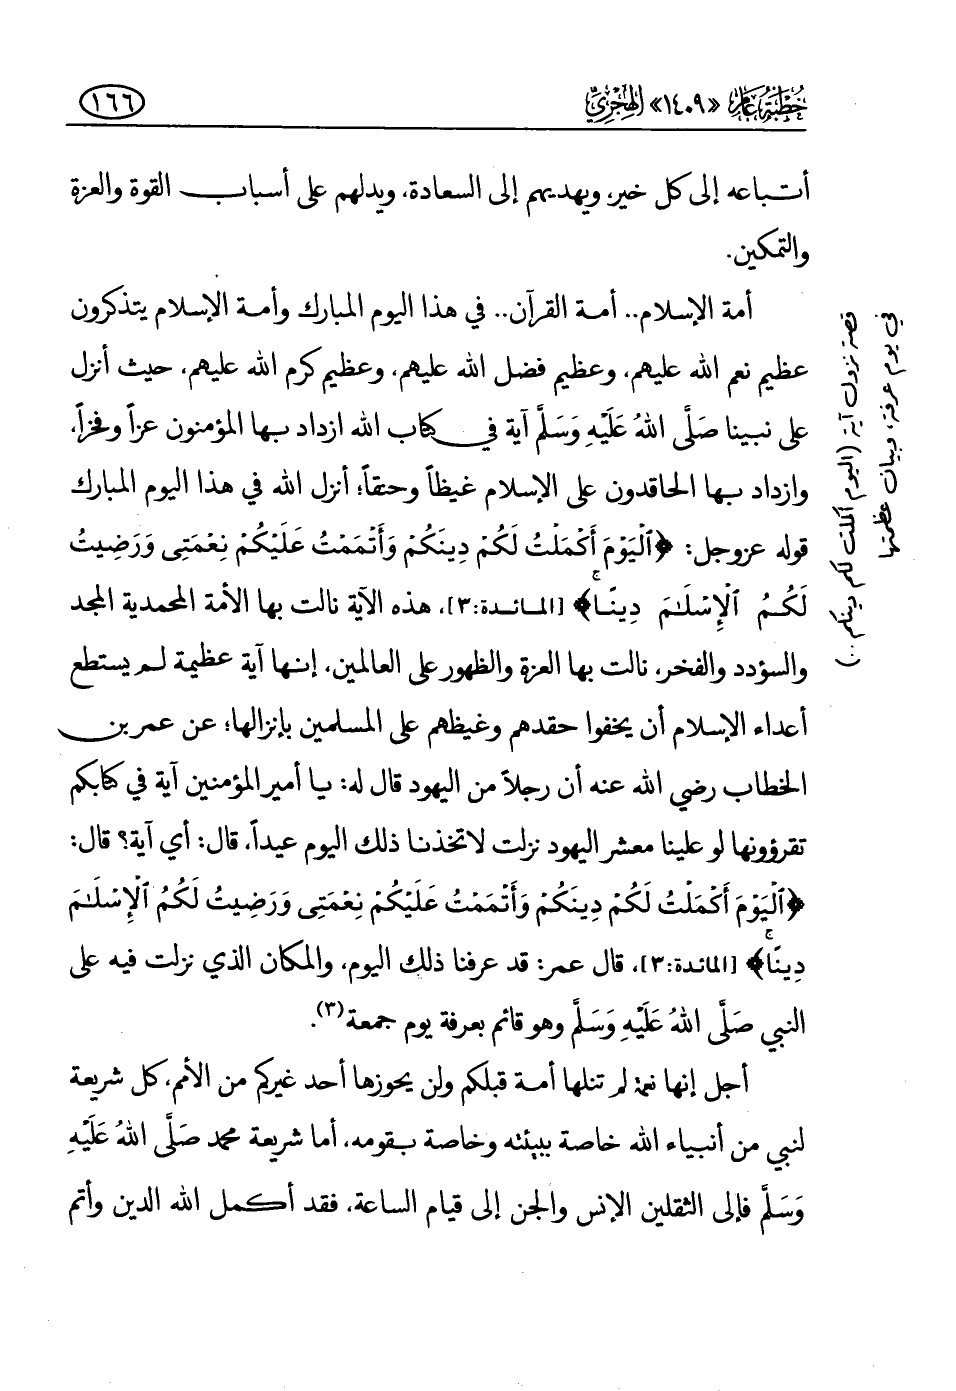 خطبة عام «١٤٠٩» الهجري
١٦٦
أتباعه إلى كل خير، ويهديهم إلى السعادة، ويدلهم على أسباب القوة والعزة
والتمكين.
أمة الإسلام.. أمة القرآن.. في هذا اليوم المبارك وأمة الإسلام يتذكرون
عظيم نعم الله عليهم، وعظيم فضل الله عليهم، وعظيم كرم الله عليهم، حيث أنزل
على نبينا صَلَّى اللهُ عَلَيْهِ وَسَلَّمَ آية في كتاب الله ازداد بها المؤمنون عزاً وفخراً،
وازداد بها الحاقدون على الإسلام غيظاً وحنقاً؛ أنزل الله في هذا اليوم المبارك
قوله عزوجل: ﴿ٱلۡيَوۡمَ أَكۡمَلۡتُ لَكُمۡ دِينَكُمۡ وَأَتۡمَمۡتُ عَلَيۡكُمۡ نِعۡمَتِي وَرَضِيتُ
لَكُمُ ٱلۡإِسۡلَٰمَ دِينٗاۚ﴾ [المائدة:٣]، هذه الآية نالت بها الأمة المحمدية المجد
والسؤدد والفخر، نالت بها العزة والظهور على العالمين، إنها آية عظيمة لم يستطع
أعداء الإسلام أن يخفوا حقدهم وغيظهم على المسلمين بإنزالها؛ عن عمر بن
الخطاب رضي الله عنه أن رجلاً من اليهود قال له: يا أمير المؤمنين آية في كتابكم
تقرؤونها لو علينا معشر اليهود نزلت لاتخذنا ذلك اليوم عيداً، قال: أي آية؟ قال:
﴿ٱلۡيَوۡمَ أَكۡمَلۡتُ لَكُمۡ دِينَكُمۡ وَأَتۡمَمۡتُ عَلَيۡكُمۡ نِعۡمَتِي وَرَضِيتُ لَكُمُ ٱلۡإِسۡلَٰمَ
دِينٗاۚ﴾ [المائدة:٣]، قال عمر: قد عرفنا ذلك اليوم، والمكان الذي نزلت فيه على
النبي صَلَّى اللهُ عَلَيْهِ وَسَلَّمَ وهو قائم بعرفة يوم جمعة(٣).
أجل إنها نعمة لم تنلها أمة قبلكم ولن يحوزها أحد غيركم من الأمم، كل شريعة
لنبي من أنبياء الله خاصة ببيئته وخاصة بقومه، أما شريعة محمد صَلَّى اللهُ عَلَيْهِ
وَسَلَّمَ فإلى الثقلين الإنس والجن إلى قيام الساعة، فقد أكمل الله الدين وأتم
قصة نزول آية (اليوم أكملت لكم دينكم ...)
في يوم عرفة، وبيان عظمتها